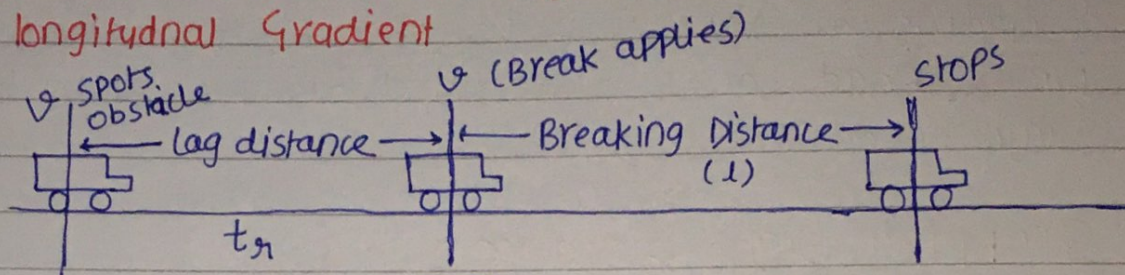 longitudnal Gradient
v spots obstacle
v (Break applies)
stops
lag distance
Breaking Distance
(l)
tr